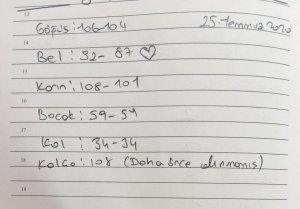 13
Göğüs: 106-104 25.Temmuz 2020
14
Bel : 92-87 ♡
15
Karın: 108-101
16
Bacak : 59-54
17
Kol : 34-34
18
Kalça : 108 (Daha önce alınmamış)
19